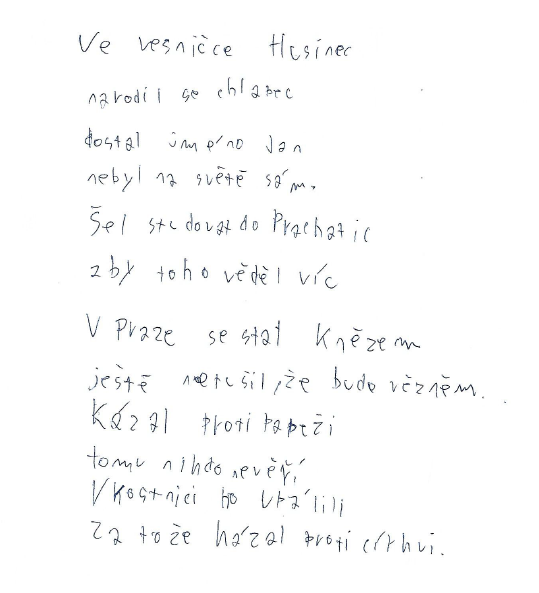 Ve vesničce Husinec
narodil se chlapec
dostal jméno Jan
nebyl na světě sám.
Šel studovat do Prachatic
aby toho věděl víc
V Praze se stal Knězem
ještě netušil, že bude vězněm.
Kázal proti papeži
tomu nihdo nevěří
V kostnici ho upálili
Za to že házal proti církvi.